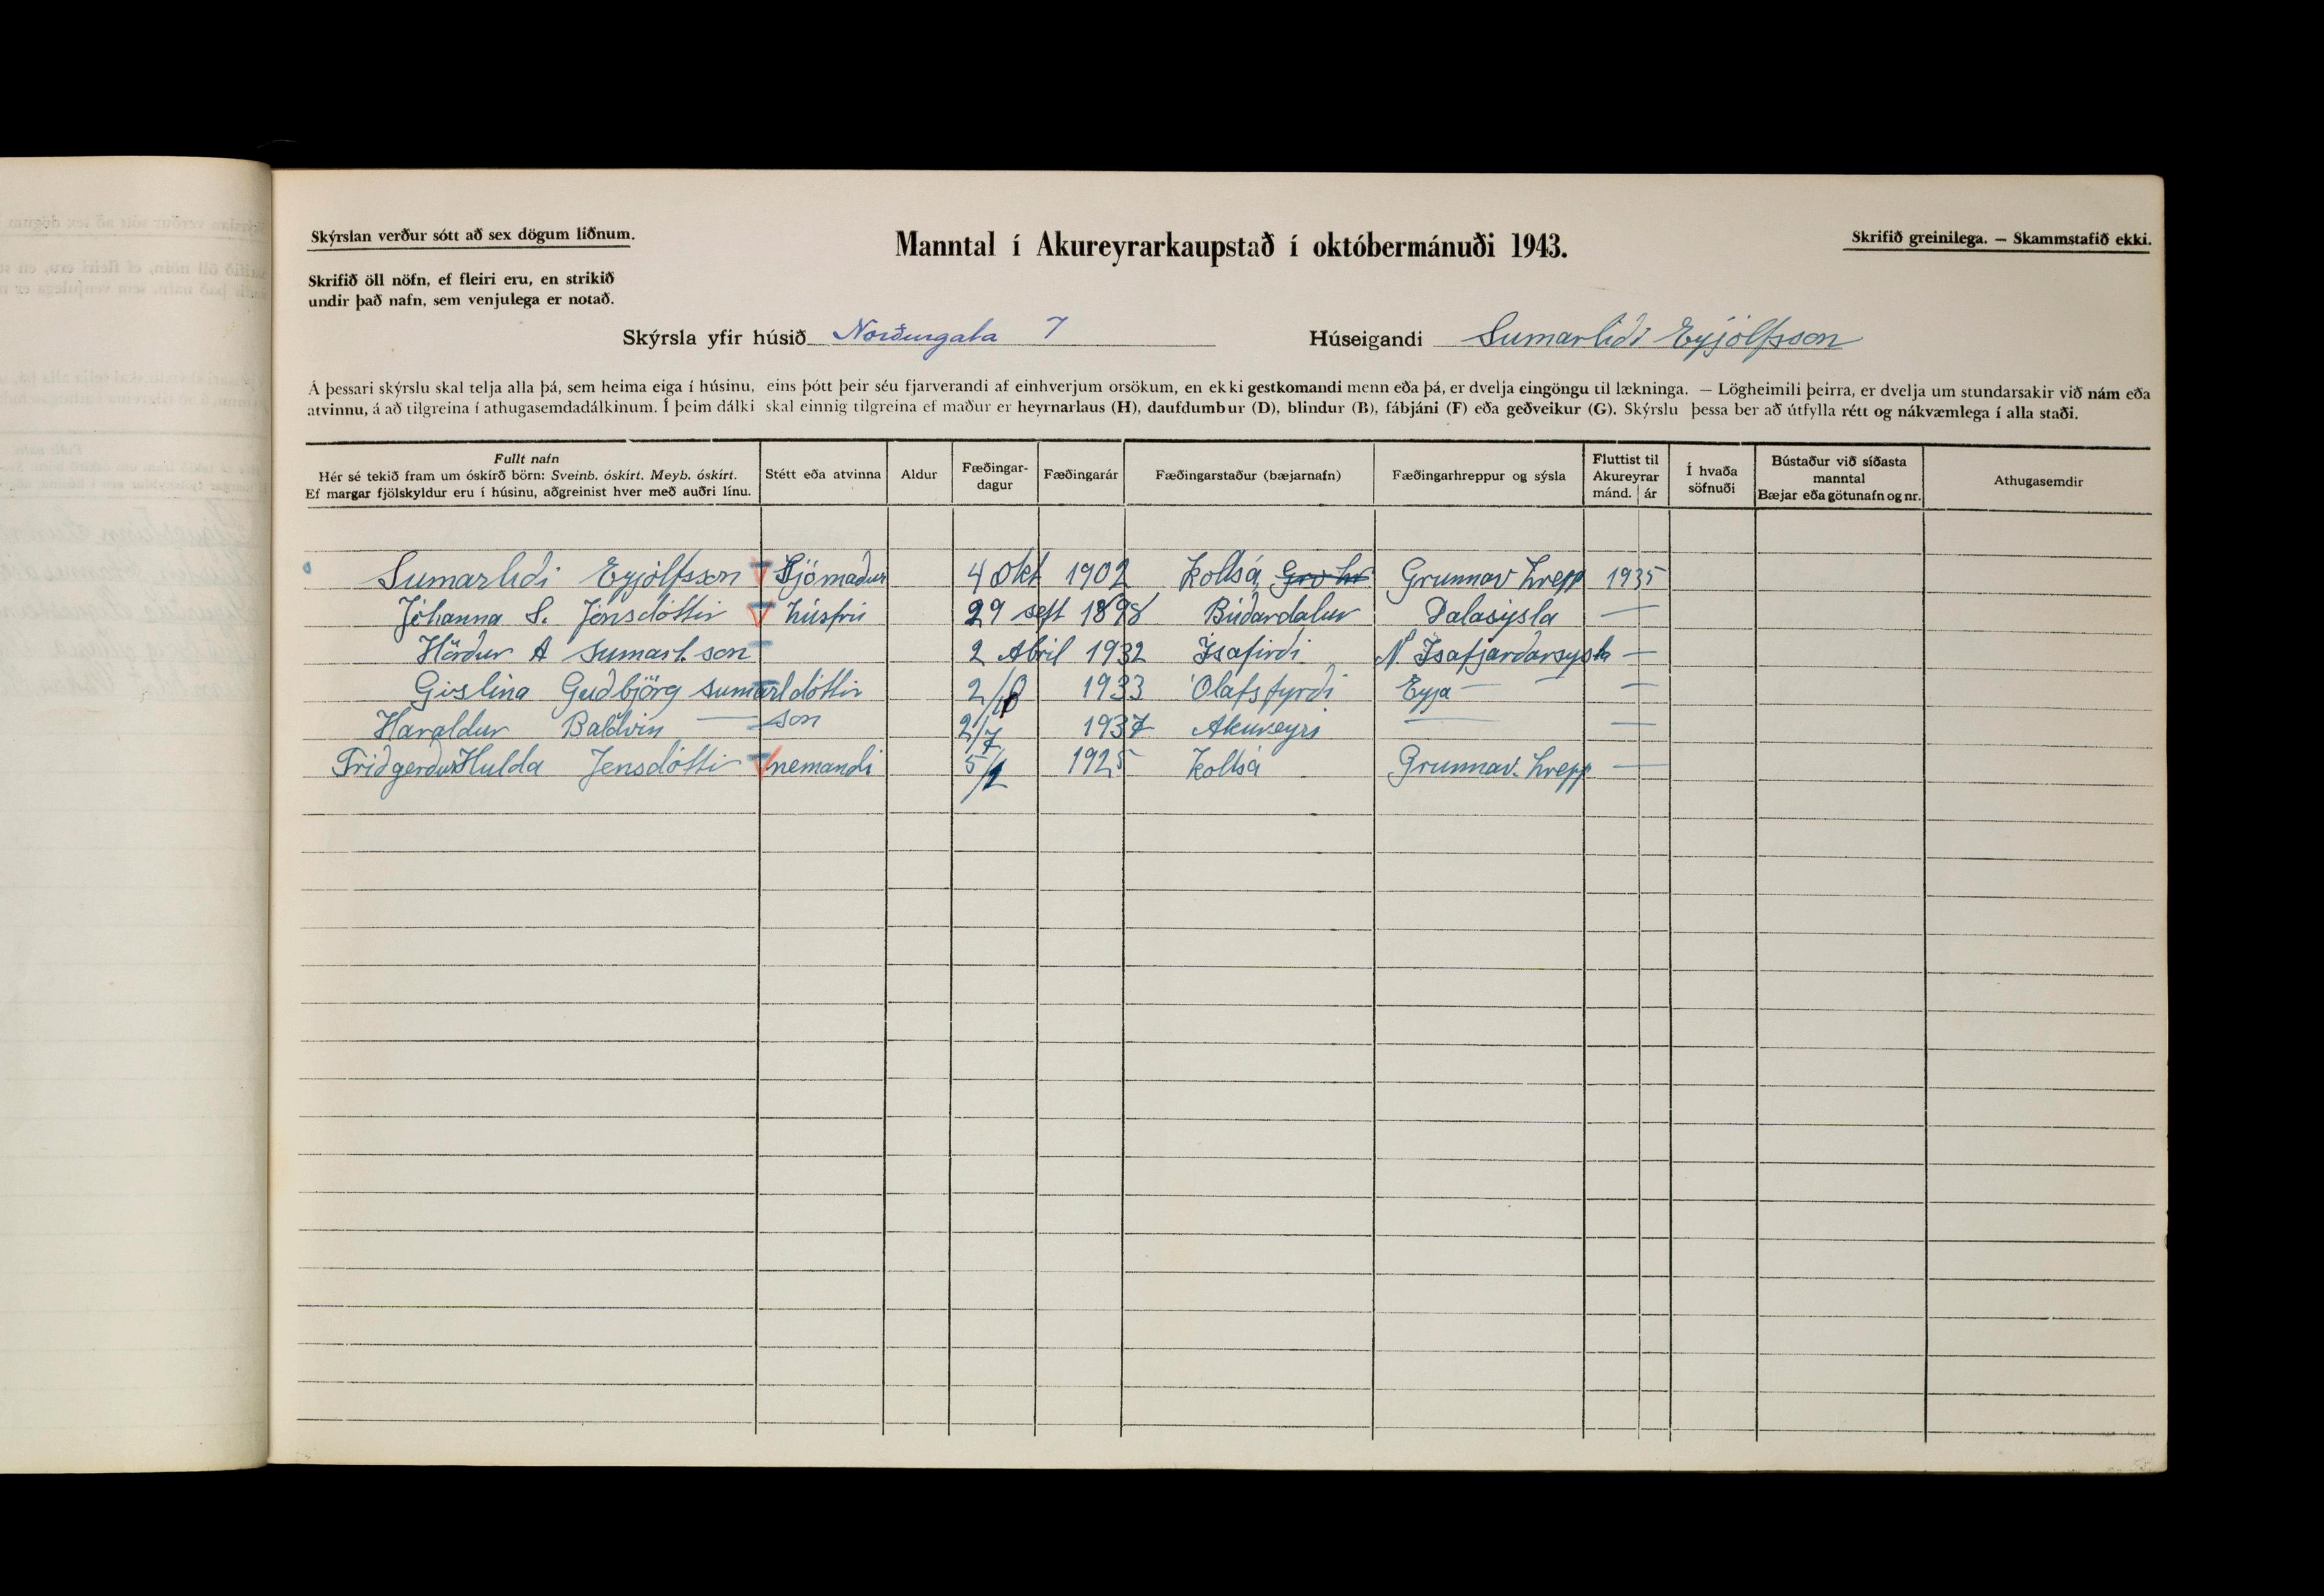 Skýrslan verður sótt að sex dögum liðnum.
Manntal í Akureyrarkaupstað í októbermánuði 1943.
Skrifið greinilega. — Skammstafið ekki.
Skrifið öll nöfn, ef fleiri eru, en strikið
undir það nafn, sem venjulega er notað.
Skýrsla yfir húsið Norðurgata 7 Húseigandi Sumarlidi Eyjólfsson
Á þessari skýrslu skal telja alla þá, sem heima eiga í húsinu, eins þótt þeir séu fjarverandi af einhverjum orsökum, en ekki gestkomandi menn eða þá, er dvelja eingöngu til lækninga. — Lögheimili þeirra, er dvelja um stundarsakir við nám eða
atvinnu, á að tilgreina í athugasemdadálkinum. Í þeim dálki skal einnig tilgreina ef maður er heyrnarlaus (H), daufdumbur (D), blindur (B), fábjáni (F) eða geðveikur (G). Skýrslu þessa ber að útfylla rétt og nákvæmlega í alla staði.
Fullt nafn
Hér sé tekið fram um óskírð börn: Sveinb. óskírt. Meyb. óskírt.
Ef margar fjölskyldur eru í húsinu, aðgreinist hver með auðri línu.
Stétt eða atvinna
Aldur
Fæðingar-
dagur
Fæðingarár
Fæðingarstaður (bæjarnafn)
Fæðingarhreppur og sýsla
Fluttist til
Akureyrar
mánd. ár
Í hvaða
söfnuði
Bústaður við síðasta
manntal
Bæjar eða götunafn og nr.
Athugasemdir
Sumarlidi Eyjólfsson Sjómadur 4 Okt 1902 Kollsá Grunnav hrepp 1935
Jóhanna S. Jónsdóttir húsfrú 29 sept 1898 Búdardalur Dalasýsla —
Hördur A Sumarl.son 2 Abril 1932 Ísafirdi N Ísafjardarsysla —
Gislína Gudbjörg Sumarldóttir 1933 Ólafsfyrdi Eyja — —
Haraldur Baldvin — son 2/7 1937 Akureyri — —
Fridgerdur Hulda Jensdótti nemandi 1925 Kollsá Grunnav. hrepp —